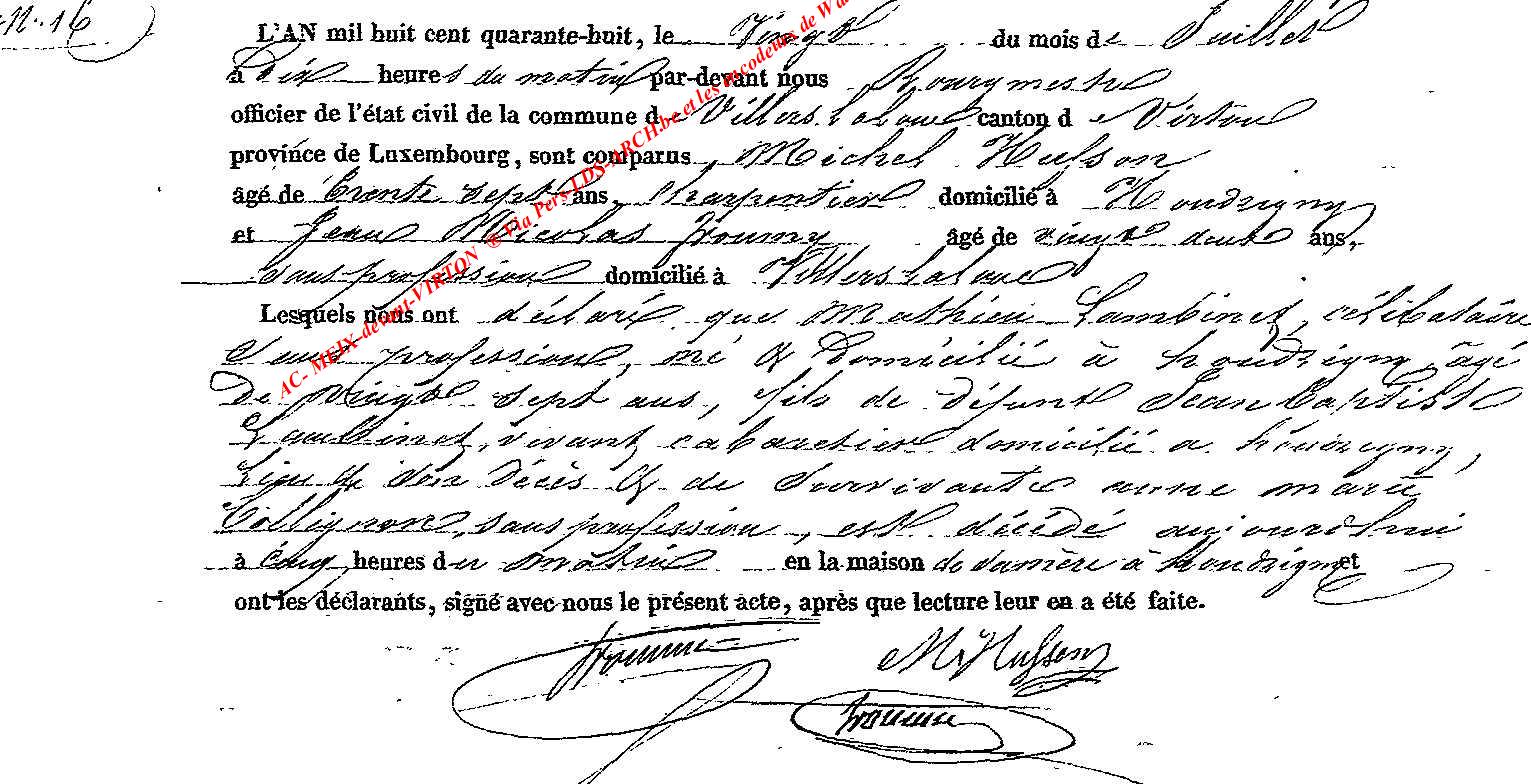 N. 16
L'AN mil huit cent quarante-huit, le Vingt du mois de Juillet
à Dix heures du matin par-devant nous Bourgmestre
officier de l'état civil de la commune de Villers la loue canton de Virton
province de Luxembourg, sont comparus Michel Husson
âgé de trente sept ans, Charpentier domicilié à Houdrigny
et Jean Nicolas Froumy âgé de vingt deux ans,
sans profession domicilié à Villers la loue
Lesquels nous ont déclaré que Mathieu Lambinet, célibataire
sans profession, né & domicilié à houdrigny âgé
De vingt sept ans, fils de défunt Jean Baptiste
Lambinet, vivant cabaretier domicilié a houdrigny,
lieu de son décès & de survivante anne marie
Collignon, sans profession, est décédé aujourdhui
à cinq heures du matin en la maison de à houdrigny et
ont les déclarants, signé avec nous le présent acte, après que lecture leur en a été faite.
M Husson
AC- MEIX-devant-VIRTON ® Via Pers-LDS-ARCH.be et les encodeurs de